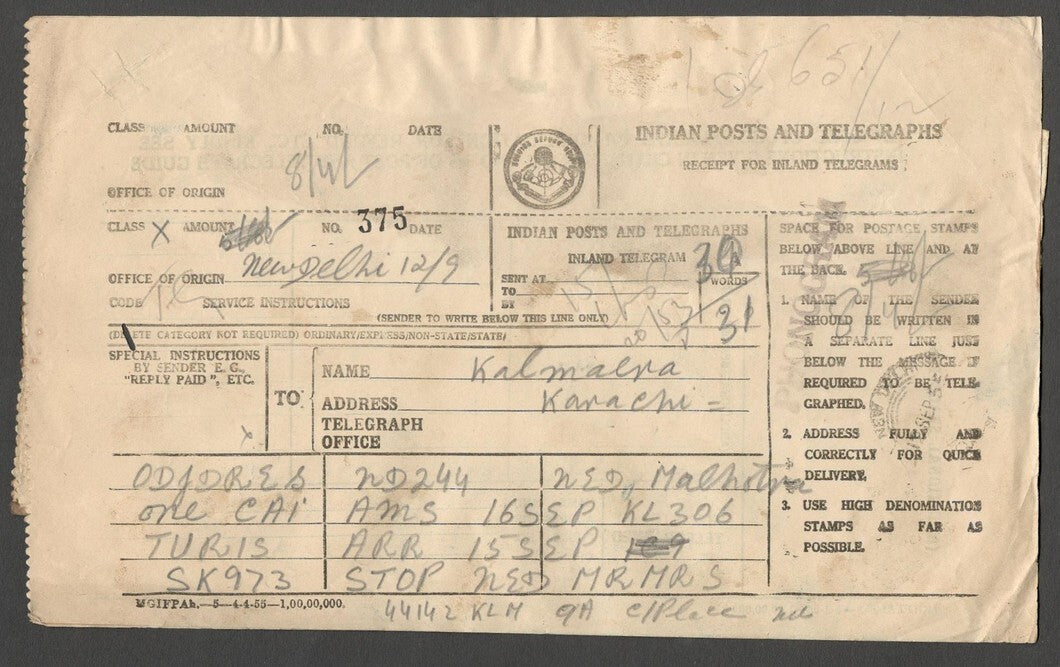 CLASS AMOUNT NO. DATE
8/4/
OFFICE OF ORIGIN
INDIAN POSTS AND TELEGRAPHS
RECEIPT FOR INLAND TELEGRAMS
651/12
CLASS X AMOUNT NO. 375 DATE
OFFICE OF ORIGIN New Delhi 12/9
CODE SERVICE INSTRUCTIONS
INDIAN POSTS AND TELEGRAPHS
INLAND TELEGRAM
SENT AT
TO
BY
WORDS
31
(SENDER TO WRITE BELOW THIS LINE ONLY)
(DELETE CATEGORY NOT REQUIRED) ORDINARY/EXPRESS/NON-STATE/STATE/
SPECIAL INSTRUCTIONS
BY SENDER E. G.,
"REPLY PAID", ETC.
TO
NAME Kalmalra
ADDRESS Karachi =
TELEGRAPH
OFFICE
X
ODJDRES ND244 NED, Malhotra
one CAi AMS 16SEP KL306
TURIS ARR 15SEP
SK973 STOP NED MRMRS
MGIFPAh.—5—4-4-55—1,00,00,000.
44142 KLM 9A C/Place nd
SPACE FOR POSTAGE STAMPS
BELOW ABOVE LINE AND AT
THE BACK.
1. NAME OF THE SENDER
SHOULD BE WRITTEN IN
A SEPARATE LINE JUST
BELOW THE MESSAGE IF
REQUIRED TO BE TELE-
GRAPHED.
2. ADDRESS FULLY AND
CORRECTLY FOR QUICK
DELIVERY.
3. USE HIGH DENOMINATION
STAMPS AS FAR AS
POSSIBLE.
PHONOGRAM
NEW DELHI
SEP